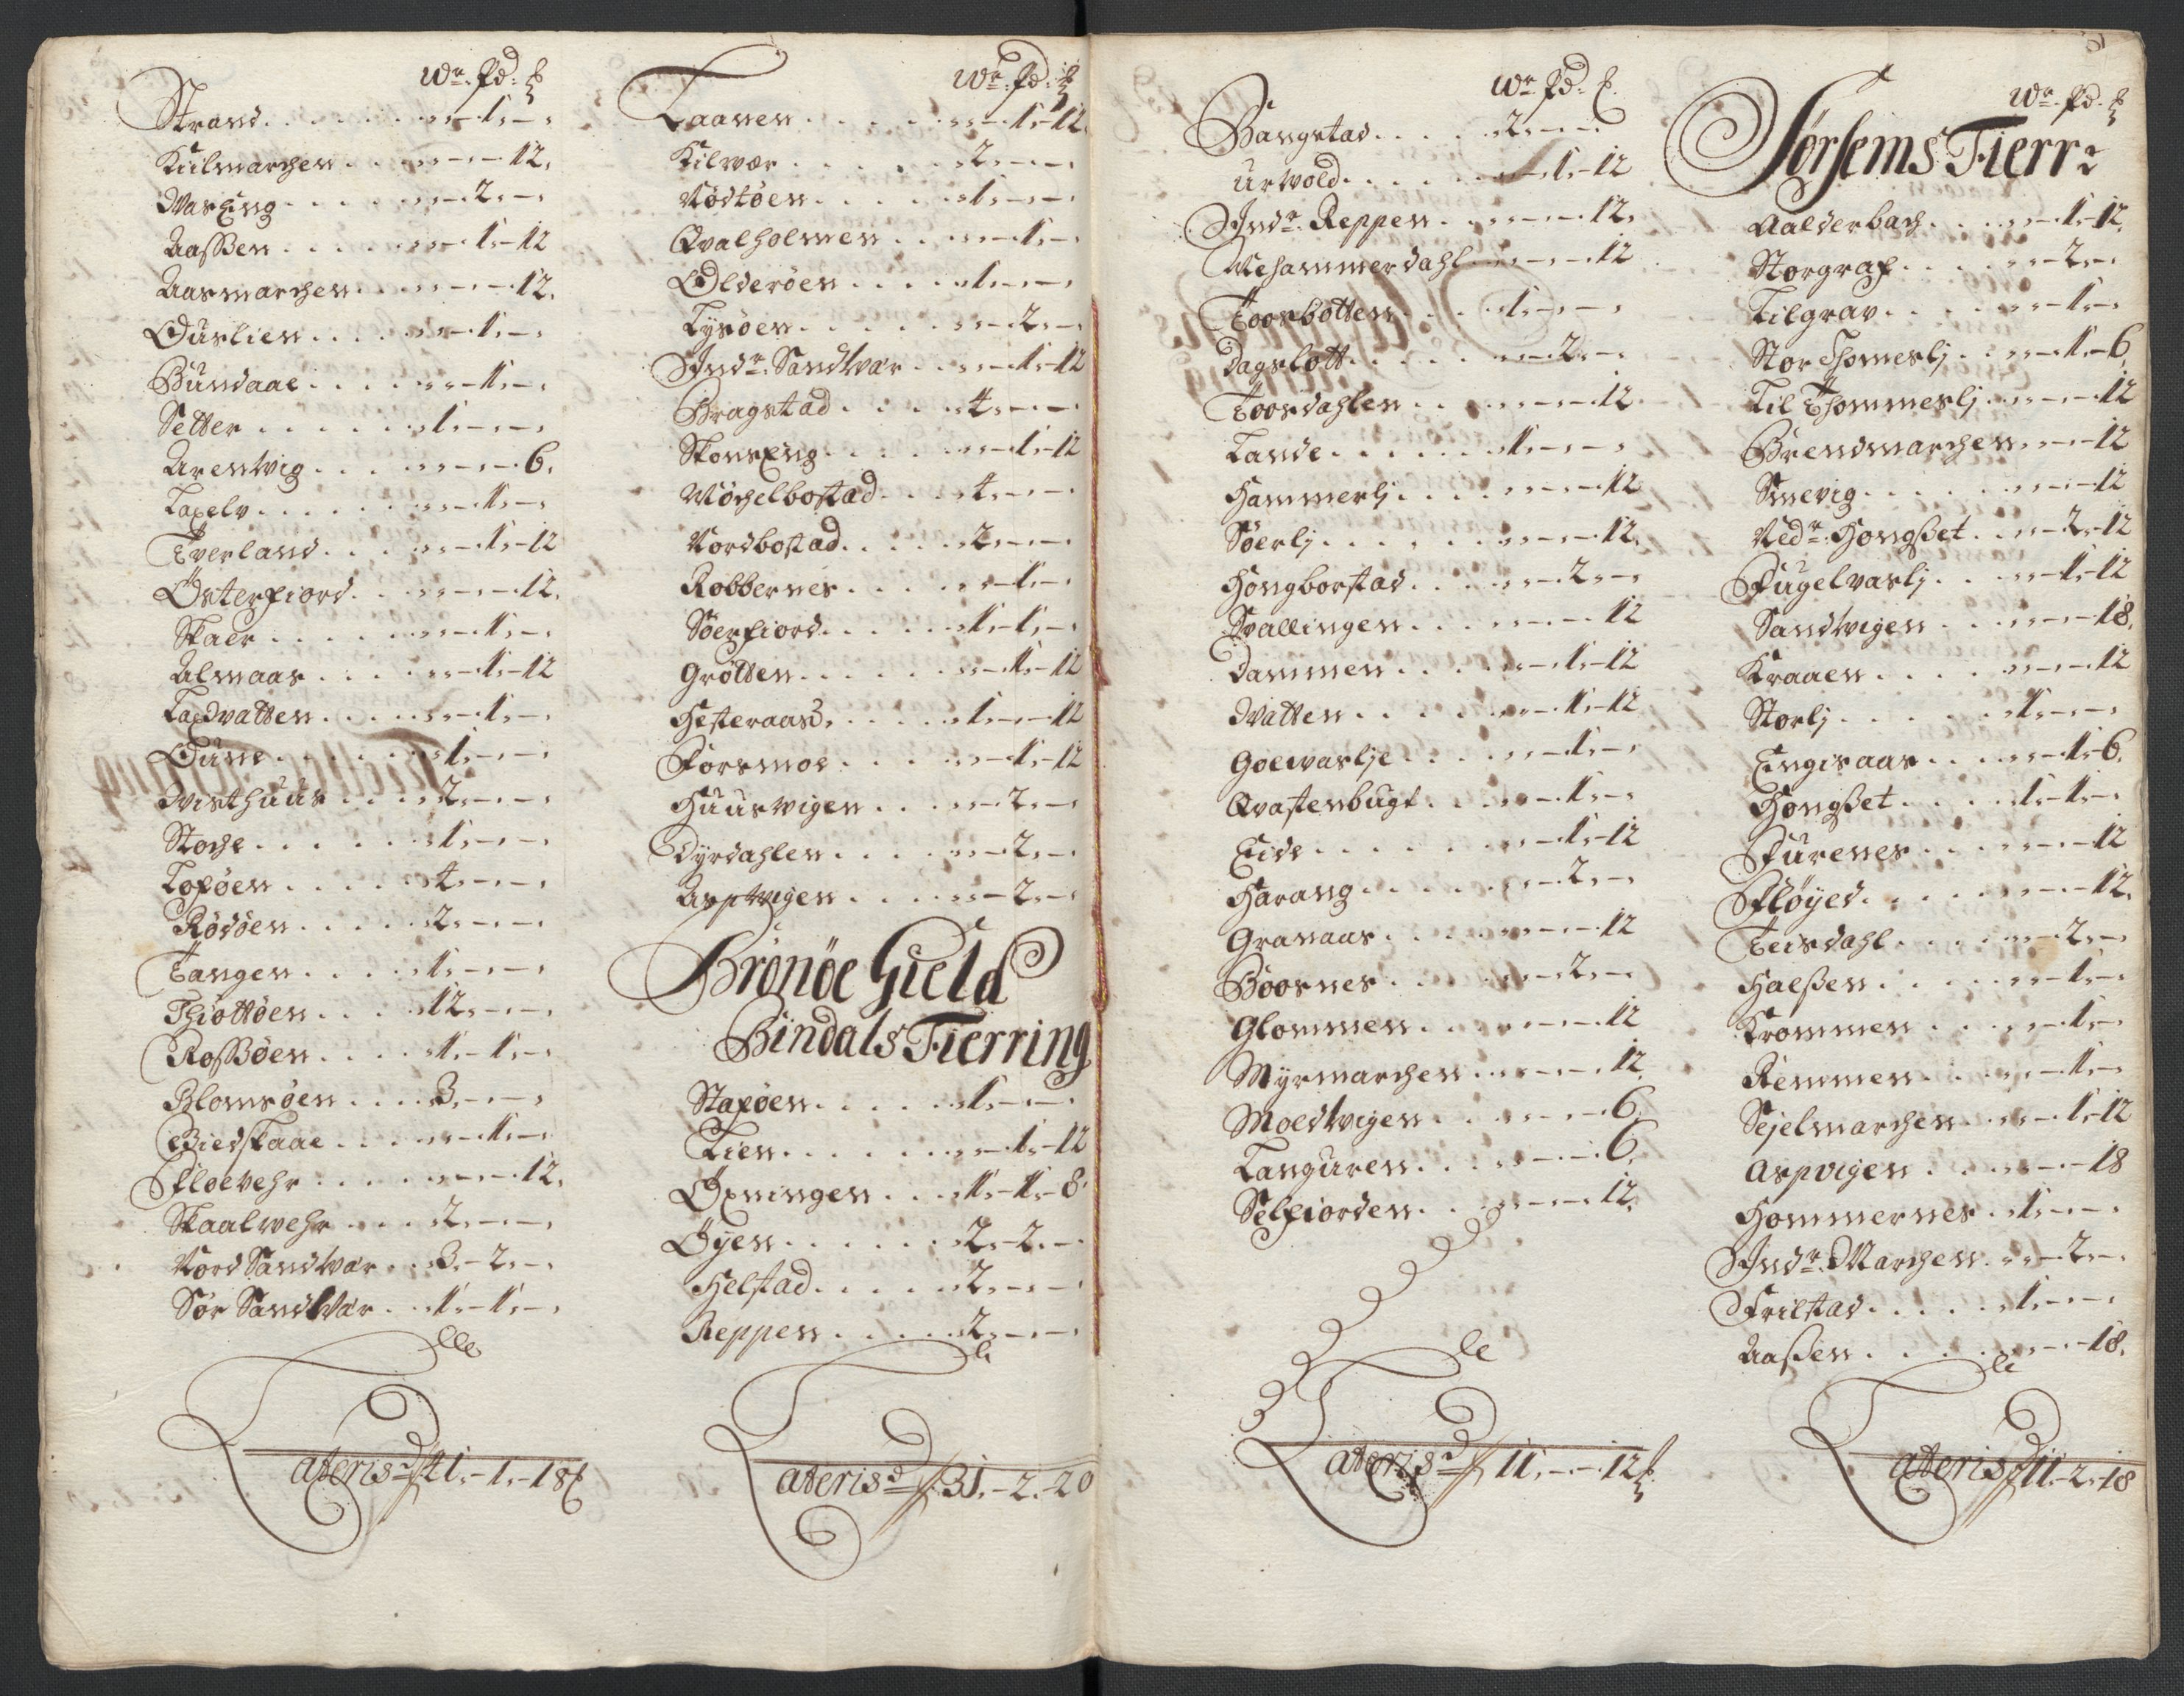 Wr. Pd. ℔
Strand . . . . . „ – 1. – „
Kiilmarchen . . . „ – „ – 12.
Mardeng . . . „ – 2. – „
Aassen . . . . „ – 1. – 12
Aasmarchen . . . „ – „ – 12.
Ourlien . . . „ – 1. – „
Bundaae . . . . „ – 1. – „
Setter . . . . . 1. – „ – „
Arentvig . . . „ – „ – 6.
Laxelv . . . . „ – 1. – „
Tverland . . . „ – 1. – 12
Østerfiord . . . „ – „ – 12.
Skaer . . . . „ – 1. – „
Almaas . . . . „ – 1. – 12
Laxvatten . . . . „ – 1. – „
Oune . . . . . 1. – „ – „
Visthuus . . . . 2. – „ – „
Stoche . . . . . 1. – „ – „
Loføen . . . . . 4. – „ – „
Rødøen . . . . . 2. – „ – „
Tangen . . . . 1. – „ – „
Thiøttøen . . . 12. – „ – „
Rossøen . . . . 1. – 1. – „
Blomsøen . . . . 3. – „ – „
Biedskaae . . . „ – 1. – „
Floevehr . . . . „ – „ – 12.
Skaalvehr . . . 2. – „ – „
Nord Sandvær . . 3. – 2. – „
Sør Sandvær . . 1. – 1. – „
Lateris 41. – 1. – 18 ℔
Wr. Pd. ℔
Laanen . . . . . „ – 1. – 12.
Kilvær . . . . . 2. – „ – „
Nødtøen . . . . 1. – „ – „
Qvalholmen . . . „ – 1. – „
Olderøen . . . . 1. – „ – „
Lysøen . . . . . „ – 2. – „
Indr. Sandvær . . „ – 1. – 12
Bragstad . . . . 4. – „ – „
Skonseng . . . . „ – 1. – 12
Møchelbostad . . . 4. – „ – „
Nordbostad . . . . 2. – „ – „
Robbernes . . . . „ – 1. – „
Søerfiord . . . . 1. – 1. – „
Grøtten . . . . . „ – 1. – 12
Hesteraas . . . . 1. – „ – 12
Forsmoe . . . . „ – 1. – 12
Huusvigen . . . „ – 2. – „
Dyrdahlen . . . . „ – 2. – „
Aspvigen . . . . „ – 2. – „
Brønøe Gield
Bindals Fierring
Staføen . . . . . 1. – „ – „
Lien . . . . . . „ – 1. – 12
Øxningen . . . 1. – 1. – 8.
Øyen . . . . . . 2. – 2. – „
Helstad . . . . . 2. – „ – „
Reppen . . . . . 2. – „ – „
Lateris 31. – 2. – 20
Wr. Pd. ℔.
Bangstad . . . . 2. – „ – „
Urvold . . . . . „ – 1. – 12
Indr. Reppen . . „ – „ – 12.
Nehammerdahl . . „ – „ – 12
Toosbotten . . . 1. – „ – „
Dagslott . . . . „ – 2. – „
Toosdahlen . . . „ – „ – 12.
Lande . . . . . 1. – „ – „
Hammerlj . . . . „ – „ – 12
Søerlj . . . . . „ – „ – 12.
Hongborstad . . . „ – 2. – „
Svallingen . . . „ – „ – 12
Dammen . . . . „ – 1. – 12
Vatten . . . . . „ – 1. – 12
Goevaslje . . . . „ – 1. – „
Qvastenbugt . . . „ – 1. – „
Eide . . . . . . „ – 1. – 12
Harang . . . . . „ – 2. – „
Granaas . . . . „ – „ – 12
Boosnes . . . . „ – 2. – „
Glommen . . . . „ – „ – 12
Myrmarchen . . . „ – „ – 12.
Moedtvigen . . . „ – „ – 6.
Languren . . . . „ – „ – 6.
Selfiorden . . . „ – „ – 12.
Lateris 11. – „ – 12 ℔
Wr. Pd. ℔
Sørsems Fierr:
Aalderbach . . . „ – 1. – 12.
Storgraf . . . . „ – 2. – „
Lilgrav . . . . „ – 1. – „
Stor Thomeslj . . „ – 1. – 6.
Lil Thommeslj . . „ – „ – 12
Brendmarchen . . „ – „ – 12
Smevig . . . . . „ – „ – 12
Nedr. Hongset . . „ – 2. – 12
Fugelvaslj . . . „ – 1. – 12
Sandvigen . . . „ – „ – 18.
Kraaen . . . . „ – „ – 12
Storlj . . . . . 1. – „ – „
Engisaas . . . . „ – 1. – 6.
Hongset . . . . 1. – 1. – „
Furenes . . . . „ – „ – 12
Fløyed . . . . . „ – „ – 12.
Teisdahl . . . . „ – 2. – „
Halsen . . . . . „ – 1. – „
Krommen . . . . „ – 1. – „
Remmen . . . . „ – 1. – „
Sejelmarchen . . . „ – 1. – 12
Aspvigen . . . . „ – „ – 18
Hommernes . . 1. – „ – „
Indr. Marchen . . „ – 2. – „
Frilstad . . . . 1. – „ – „
Aassen . . . . . „ – „ – 18.
Lateris 11. – 2. – 18